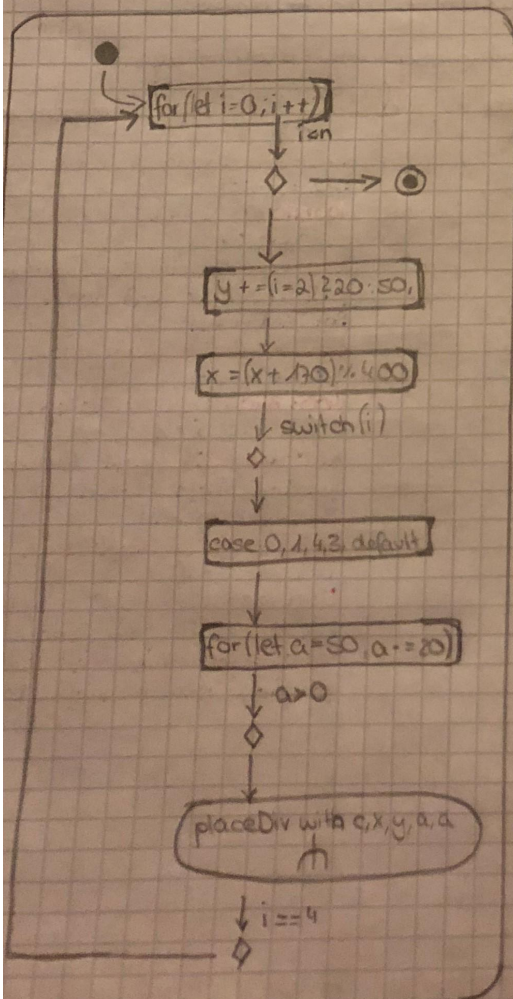 for(let i=0; i++)
i<n
y +=(i=2) ? 20 : 50;
x =(x+170)% 400
switch(i)
case 0,1,4,3, default
for(let a=50, a-=20)
a>0
placeDiv with c,x,y,a,a
i==4